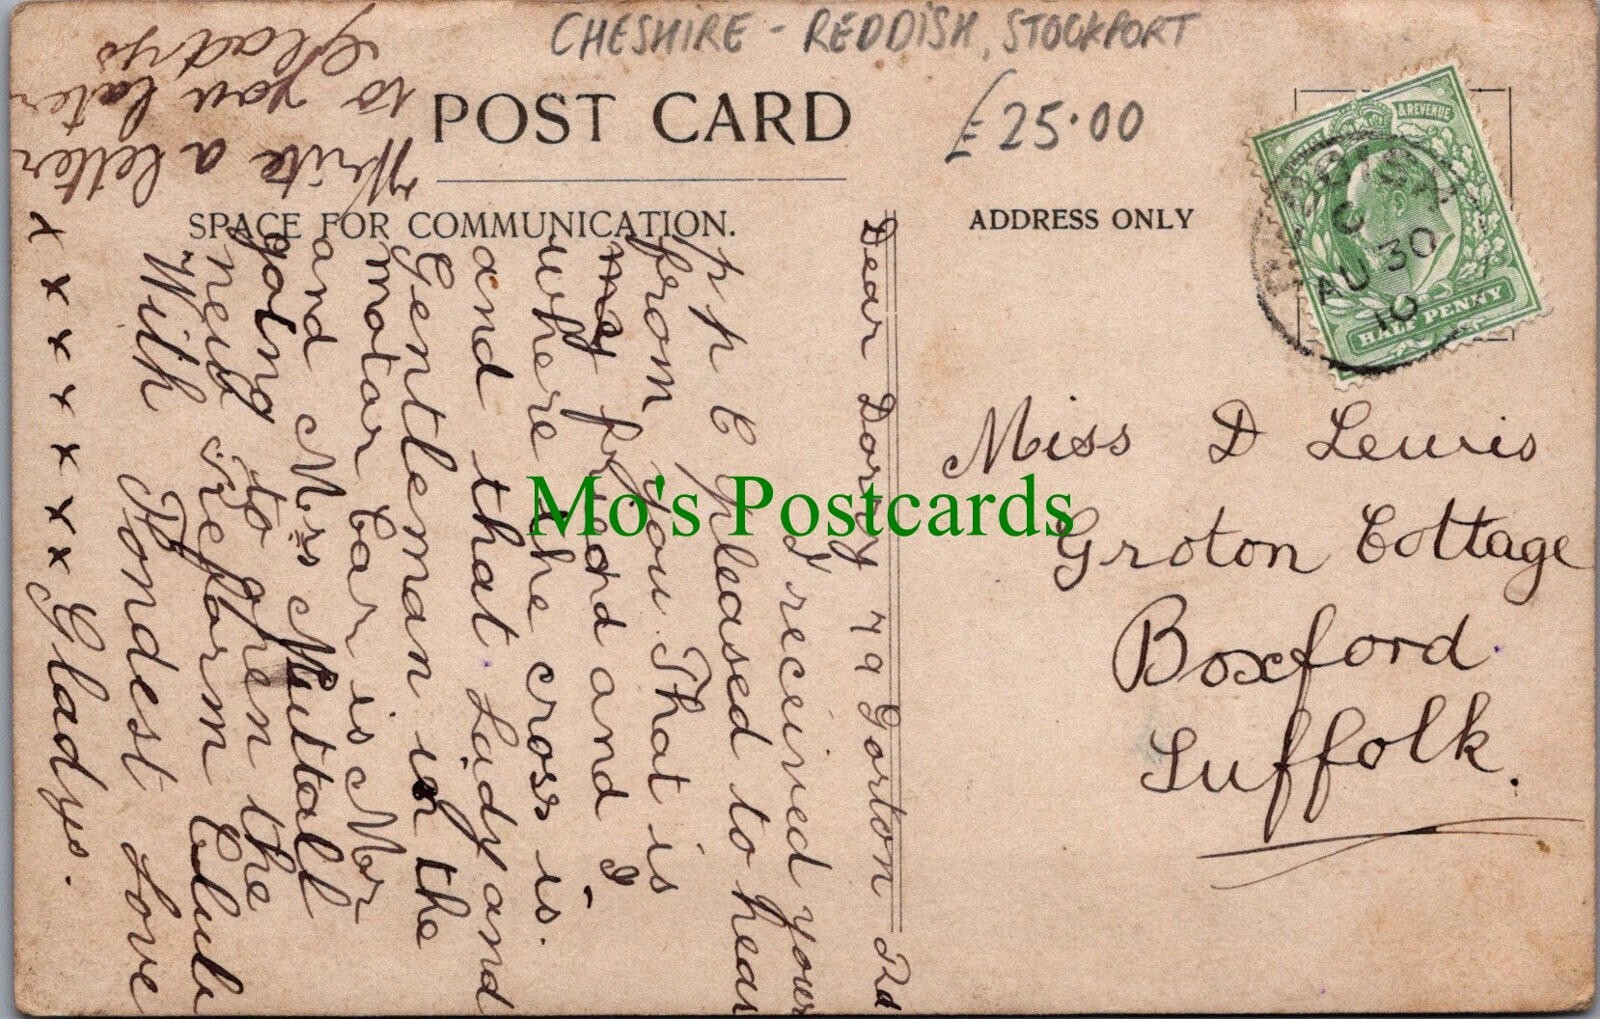 CHESHIRE - REDDISH, STOCKPORT
£25.00
POST CARD
SPACE FOR COMMUNICATION.
ADDRESS ONLY
& REVENUE
HALF PENNY
REDDISH
C
AU 30
10
Miss D Lewis
Groton Cottage
Boxford
Suffolk.
79 Gorton Rd
Dear Dorry
I received your
p p C pleased to hear
from you That is
me my friend and I
where the cross is.
and that Lady and
Gentleman in the
motar Car is Mr
and Mrs Nuttall
going to open the
new reform Club
With Fondest Love
x x x x x x x Gladys.
Write a letter
to you later
Gladys
Mo's Postcards